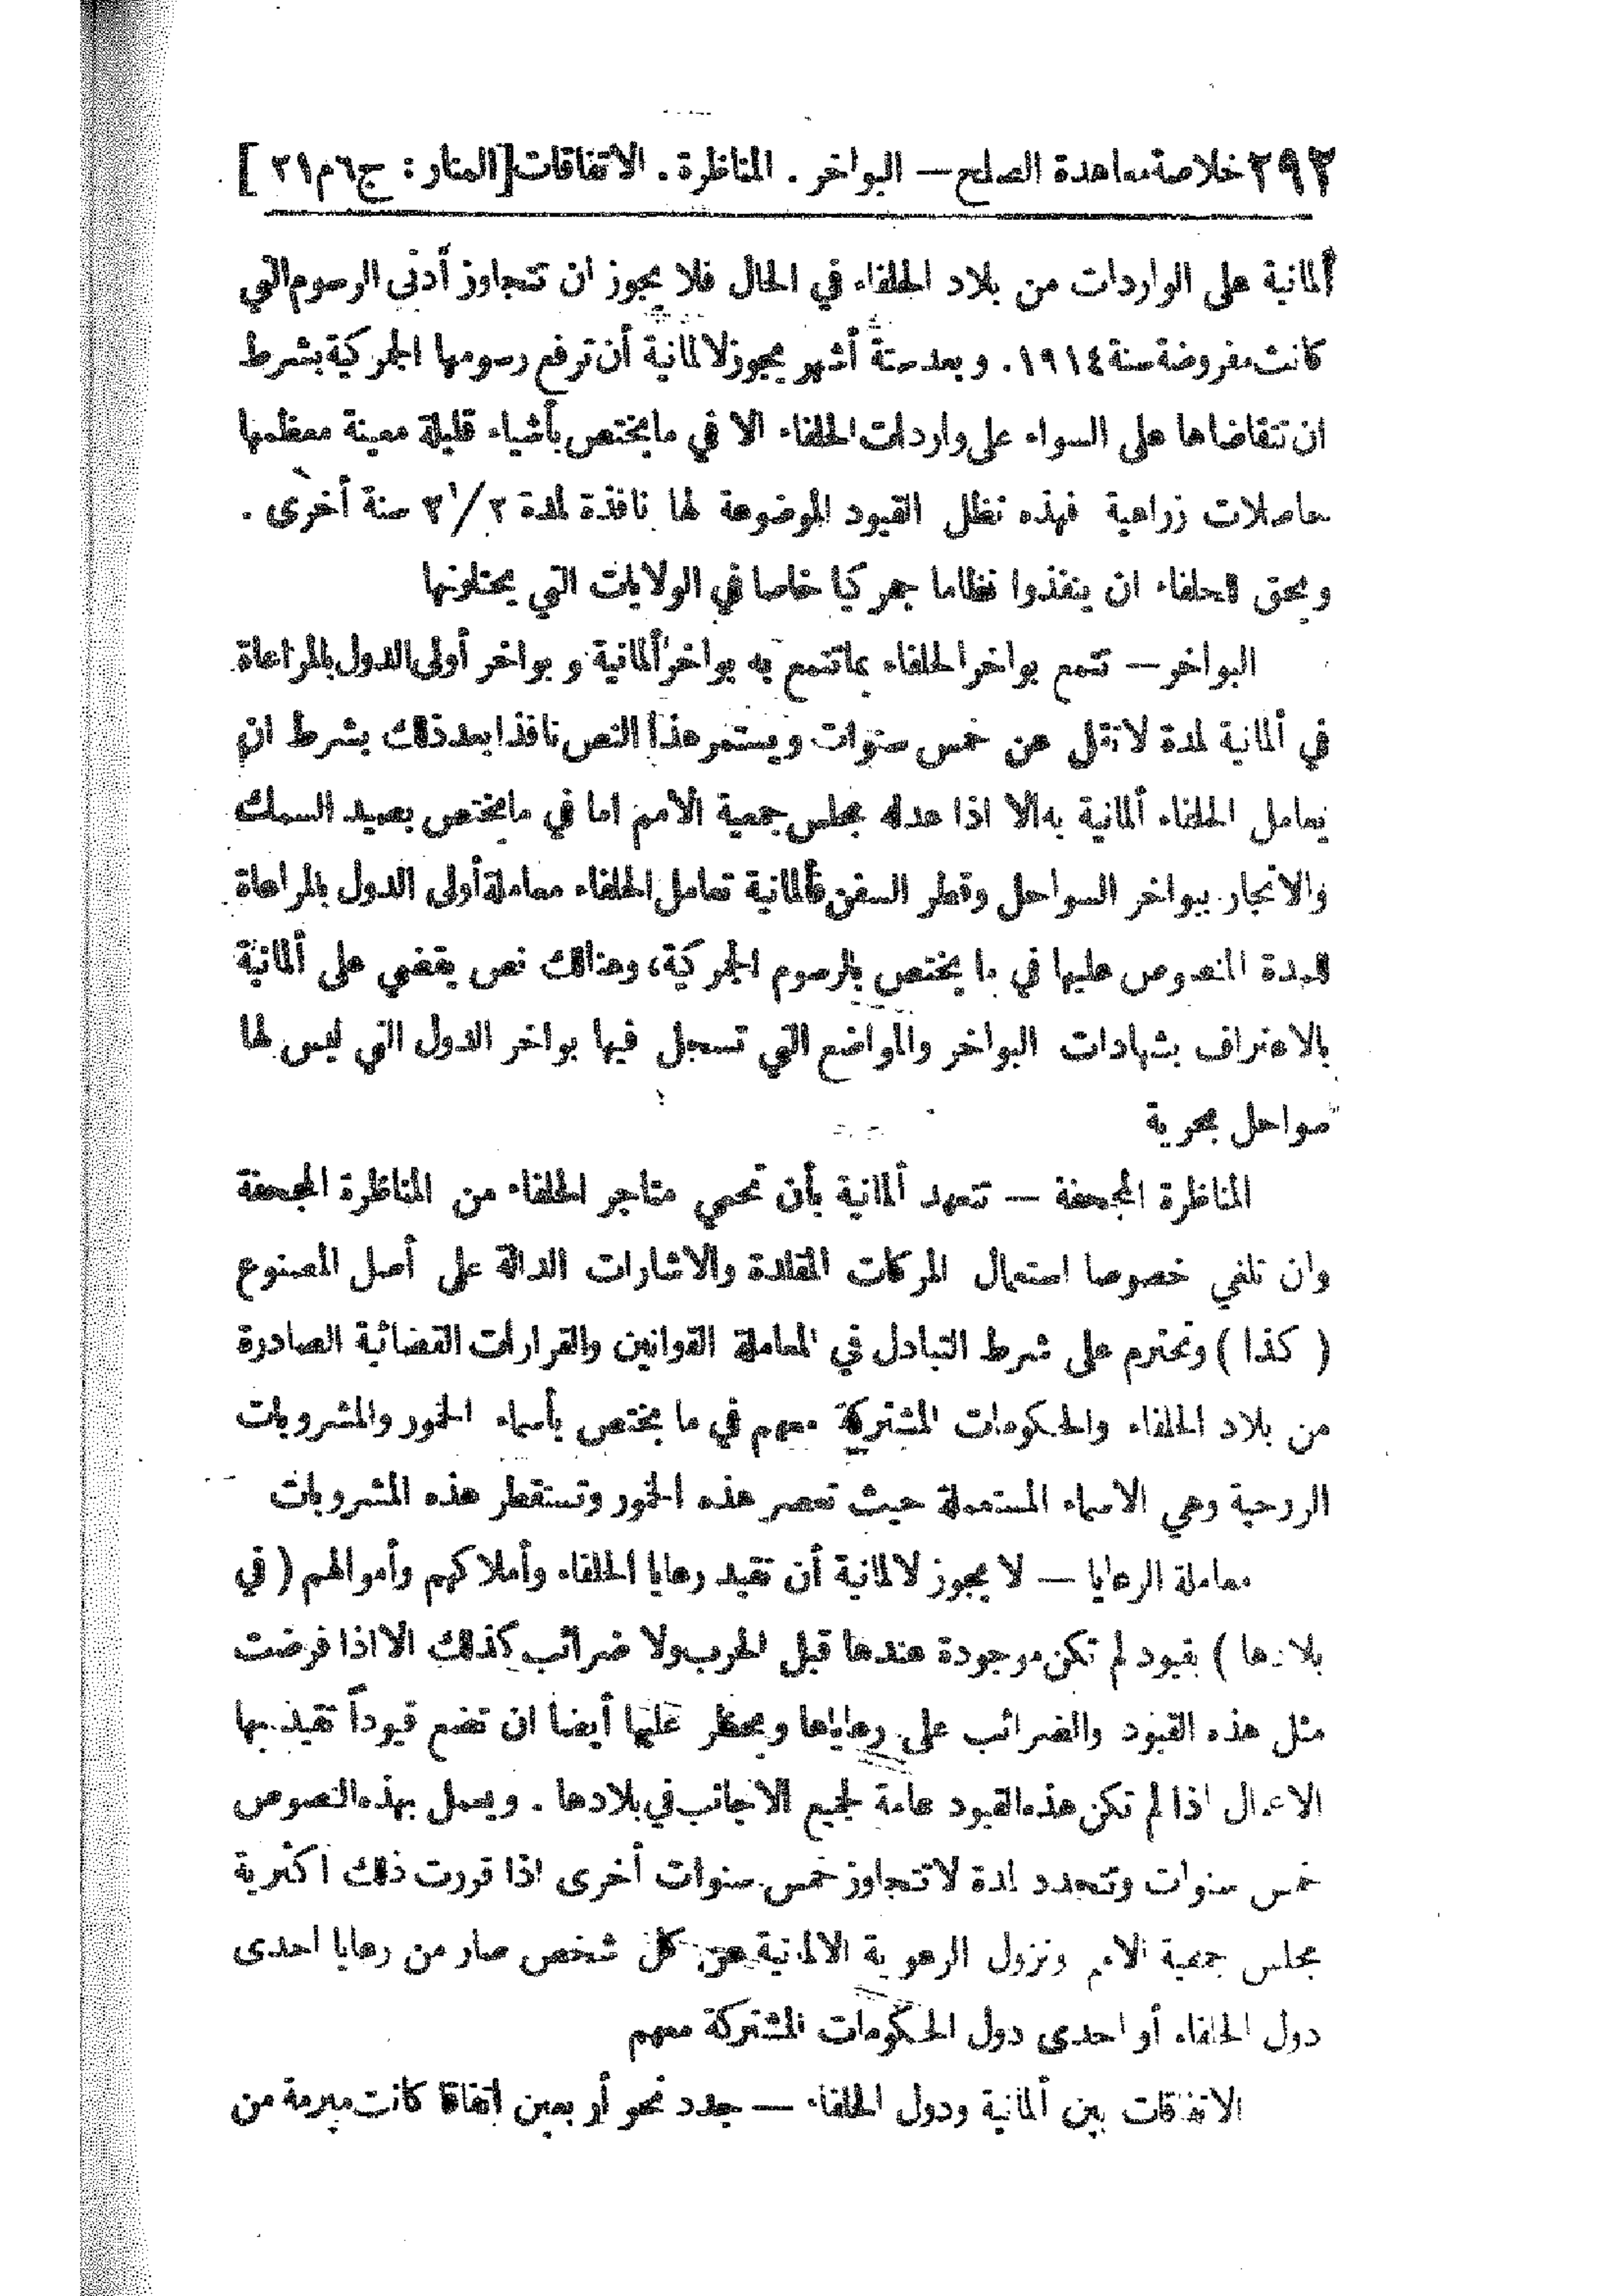 ٢٩٢ خلاصة معاهدة الصلح — البواخر . المناظرة . الاتفاقات [المنار : ج٦م٢١ ]
ألمانية على الواردات من بلاد الحلفاء في الحال فلا يجوز ان تتجاوز أدنى الرسوم التي
كانت مفروضة سنة ١٩١٤. وبعد ستة أشهر يجوز لالمانية أن ترفع رسومها الجمركية بشرط
ان تتقاضاها على السواء على واردات الحلفاء الا في ما يختص بأشياء قليلة معينة معظمها
حاصلات زراعية فهذه تظل القيود الموضوعة لها نافذة لمدة ٢ ١/٢ سنة أخرى .
ويحق للحلفاء ان ينفذوا نظاما جمركيا خاصا في الولايات التي يحتلونها
البواخر — تتمع بواخر الحلفاء بما تتمع به بواخر ألمانية و بواخر أولى الدول بالمراعاة
في ألمانية لمدة لا تقل عن خمس سنوات ويستمر هذا النص نافذا بعد ذلك بشرط ان
يعامل الحلفاء ألمانية به الا اذا عدله مجلس جمعية الامم اما في ما يختص بصيد السمك
والاتجار ببواخر السواحل وقطر السفن فألمانية تعامل الحلفاء معاملة أولى الدول بالمراعاة
للمدة المنصوص عليها في ما يختص بالرسوم الجمركية، وهنالك نص يقضي على ألمانية
بالاعتراف بشهادات البواخر والمواضع التي تسجل فيها بواخر الدول التي ليس لها
سواحل بحرية
المناظرة المجحفة — تتعهد ألمانية بأن تحمي متاجر الحلفاء من المناظرة المجحفة
وان تلغي خصوصا استعمال المركات المقلدة والاشارات الدالة على أصل المصنوع
( كذا ) وتحترم على شرط التبادل في المعاملة القوانين والقرارات القضائية الصادرة
من بلاد الحلفاء والحكومات المشتركة معهم في ما يختص بأسماء الخمور والمشروبات
الروحية وهي الاسماء المستعملة حيث تعصر هذه الخمور وتستقطر هذه المشروبات
معاملة الرعايا — لا يجوز لالمانية أن تقيد رعايا الحلفاء وأملاكهم وأموالهم ( في
بلادها ) بقيود لم تكن موجودة عندها قبل الحرب ولا ضرائب كذلك الا اذا فرضت
مثل هذه القيود والضرائب على رعاياها ويحظر عليها أيضا ان تضع قيوداً تقيد بها
الاعمال اذا لم تكن هذه القيود عامة لجميع الاجانب في بلادها . ويعمل بهذه النصوص
خمس سنوات وتتجدد لمدة لا تتجاوز خمس سنوات أخرى اذا قررت ذلك اكثرية
مجلس جمعية الامم وتزول الرعوية الالمانية عن كل شخص صار من رعايا احدى
دول الحلفاء أو احدى دول الحكومات المشتركة معهم
الاتفاقات بين ألمانية ودول الحلفاء — جدد نحو أربعين اتفاقا كانت مبرمة من